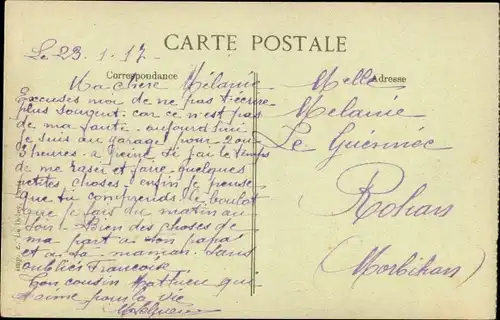 Le 23.1.17
CARTE POSTALE
Correspondance
Adresse
Ma chère Mélanie
Excuses moi de ne pas t'écrire
plus souvent car ce n'est pas
de ma faute. aujourd'hui
je suis au garage pour 2 ou
3 heures. a peine si j'ai le temps
de me raser et faire quelques
petites choses. enfin je pense
que tu comprends le boulot
que je fais du matin au
soir. Bien des choses de
ma part à ton papa
et à ta maman. Sans
oublier Francoise
Ton cousin Mathieu qui
t'aime pour la vie
Melle
Mélanie
Le Guénnec
Rohan
(Morbihan)